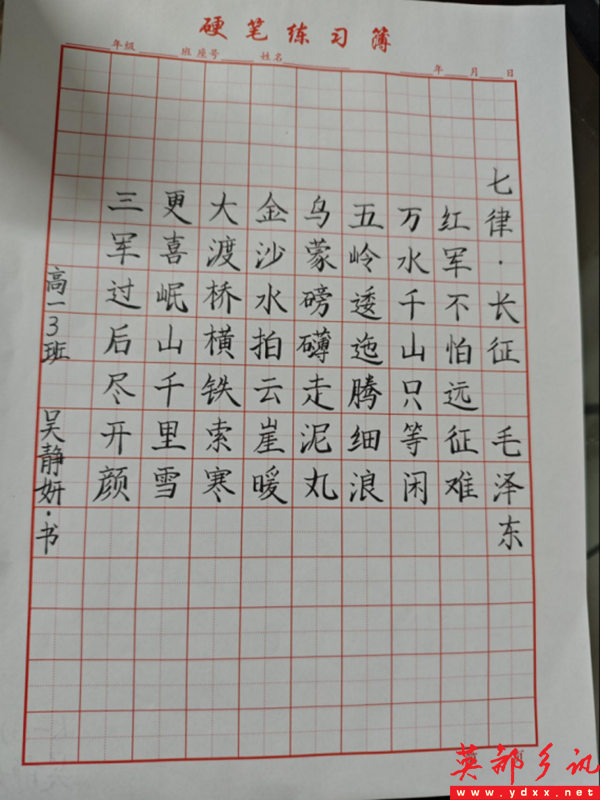 硬笔练习簿
年级 班 座号 姓名 年 月 日
七律·长征 毛泽东
红军不怕远征难
万水千山只等闲
五岭逶迤腾细浪
乌蒙磅礴走泥丸
金沙水拍云崖暖
大渡桥横铁索寒
更喜岷山千里雪
三军过后尽开颜
高一3班 吴静妍·书
英都乡讯
www.ydxx.net